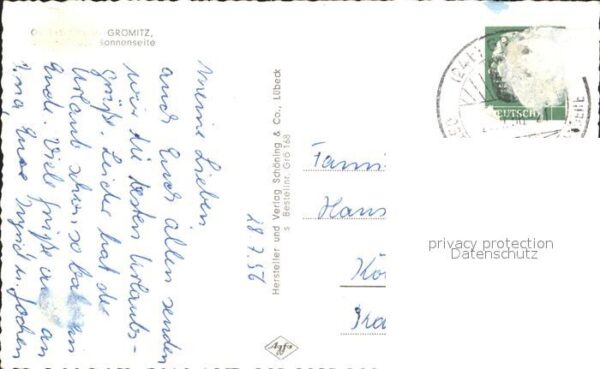 GRÖMITZ,
Sonnenseite
Meine Lieben
auch Euch allen senden
wir die besten Urlaubs-
grüße. Leider hat der
Urlaub schon so bald ein
Ende. Viele Grüße an
Eure Ingrid u. Jochen
18.7.56
Hersteller und Verlag Schöning & Co., Lübeck
s Bestellnr. Grö 168
Agfa
Fami
Hans
Kö
DEUTSCH
privacy protection
Datenschutz